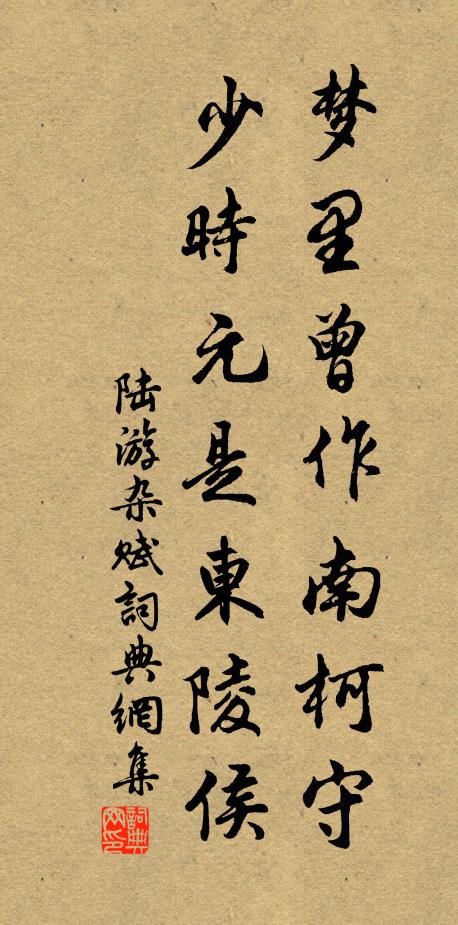 梦里曾作南柯守
少時元是東陵侯
陆游杂赋詞典網集
詞典網印